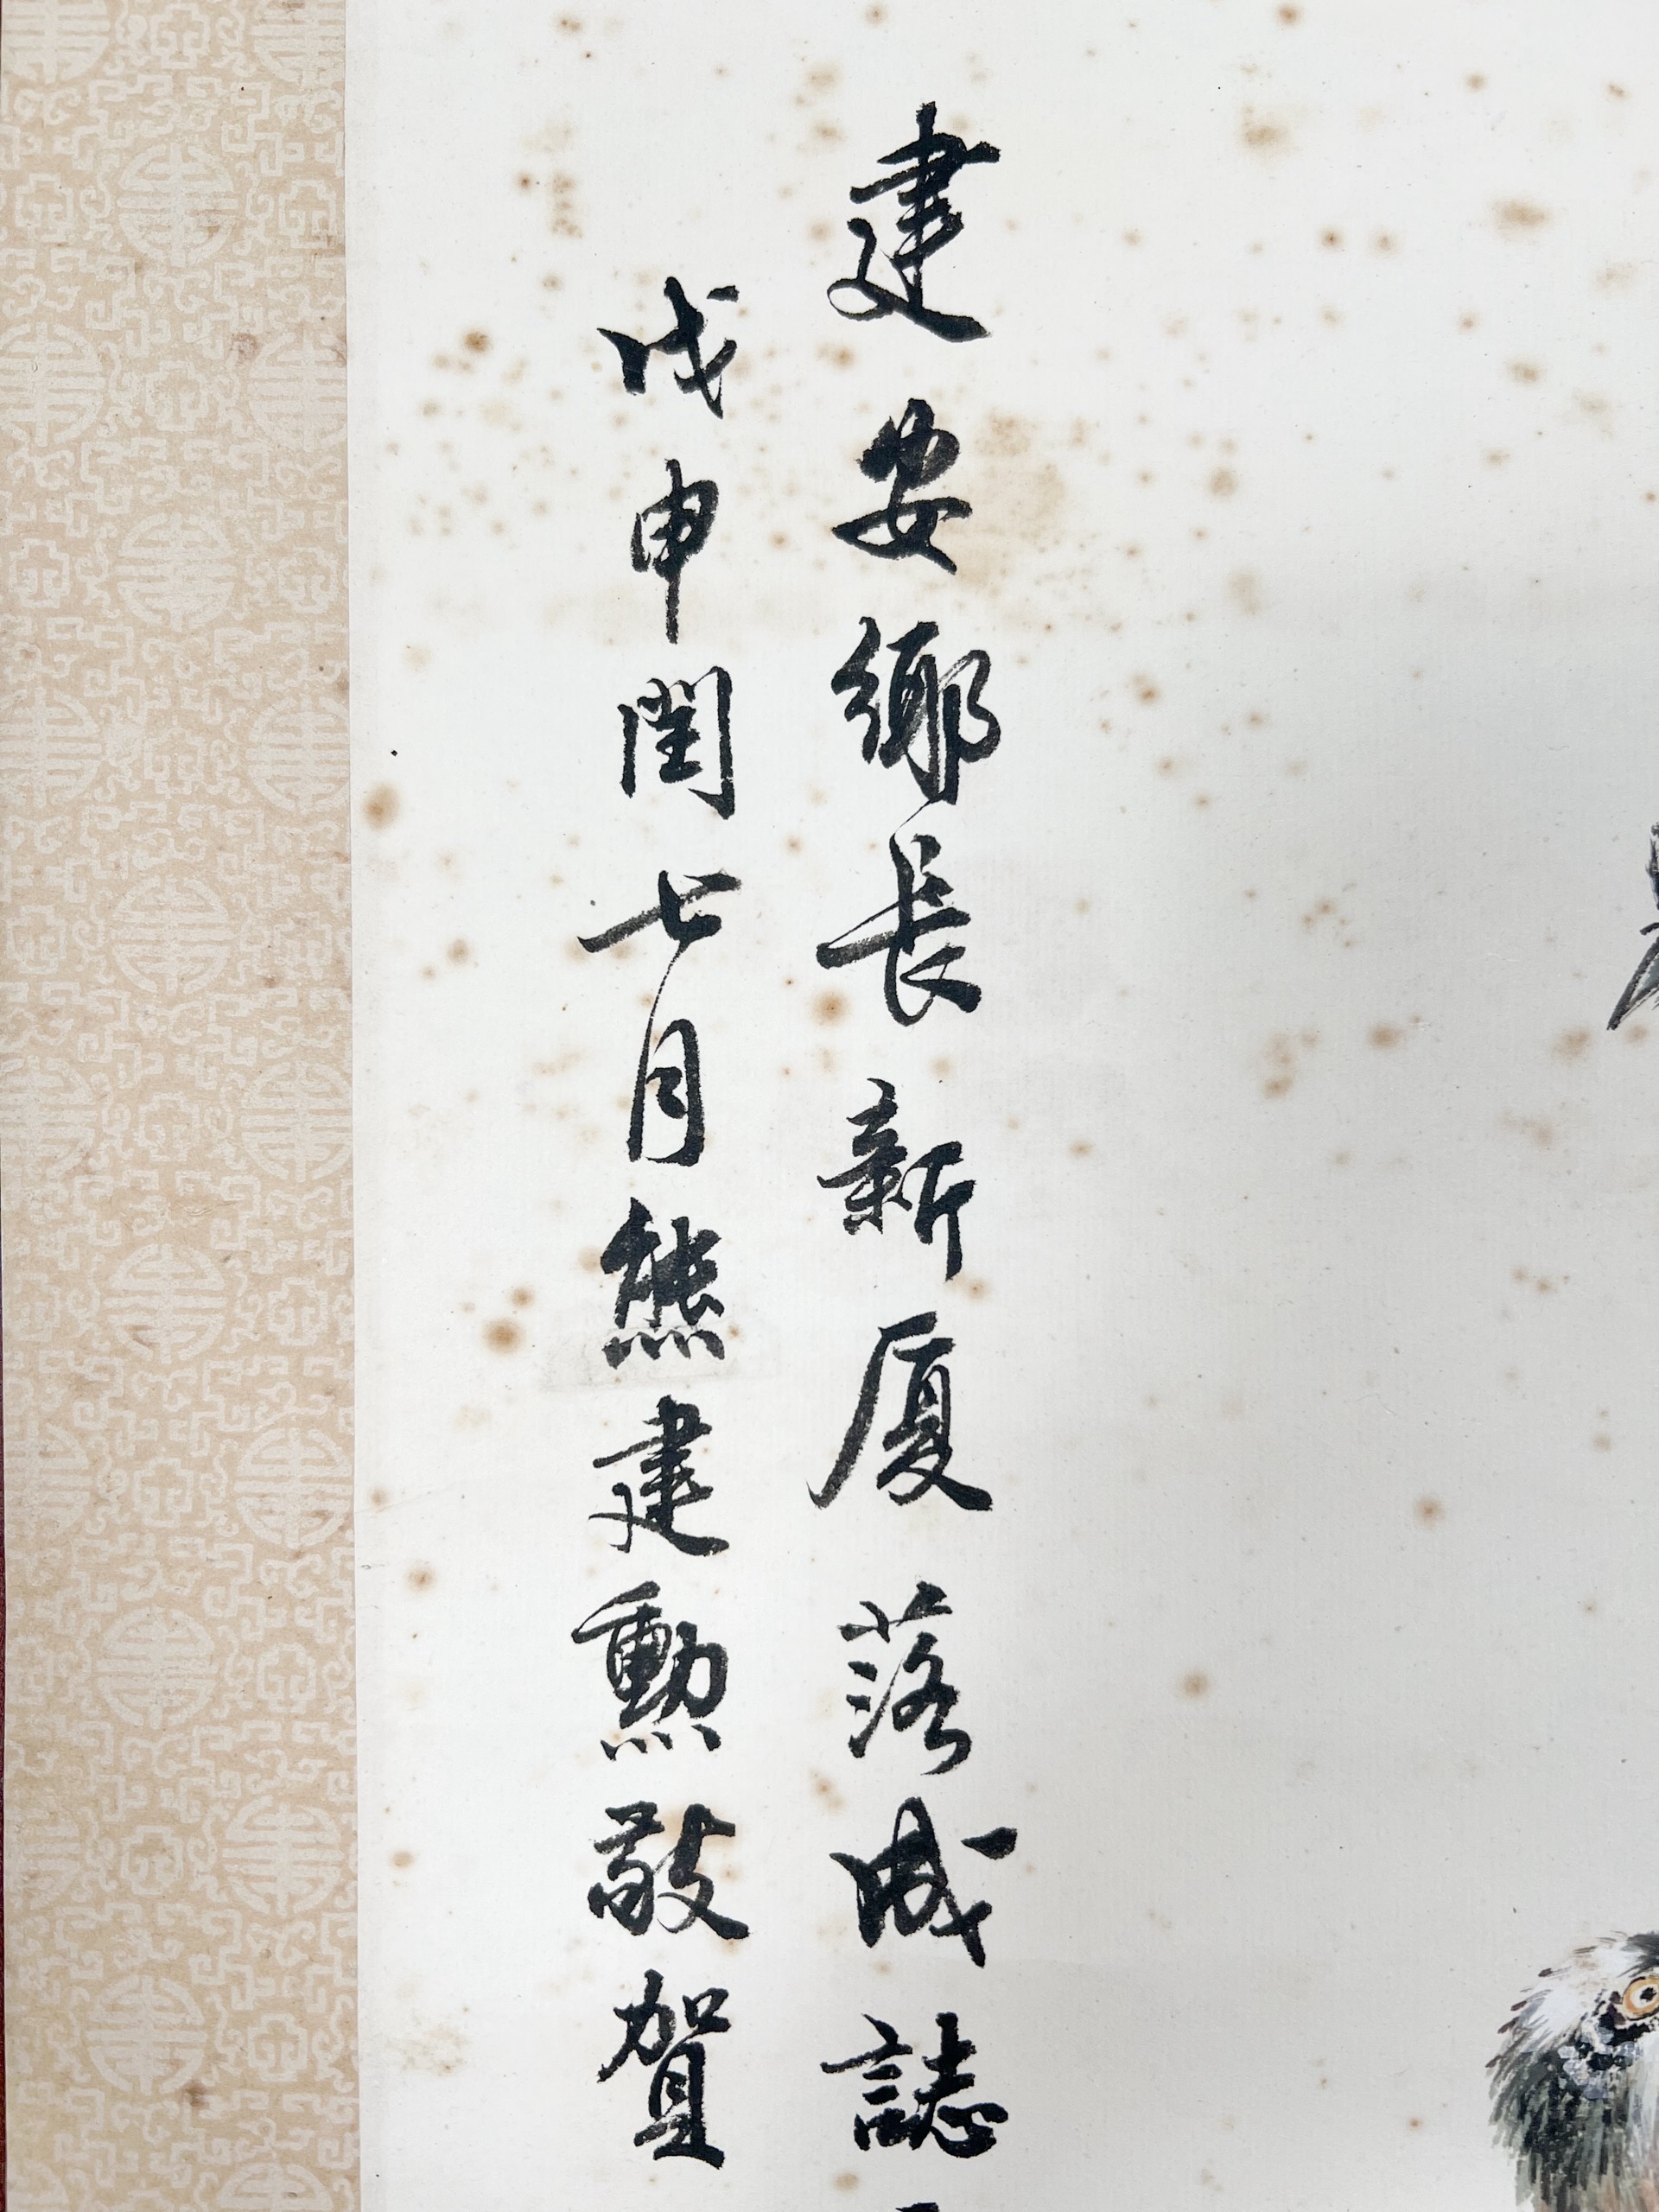 建安鄉長新厦落成誌
戊申閏七月熊建勳敬賀